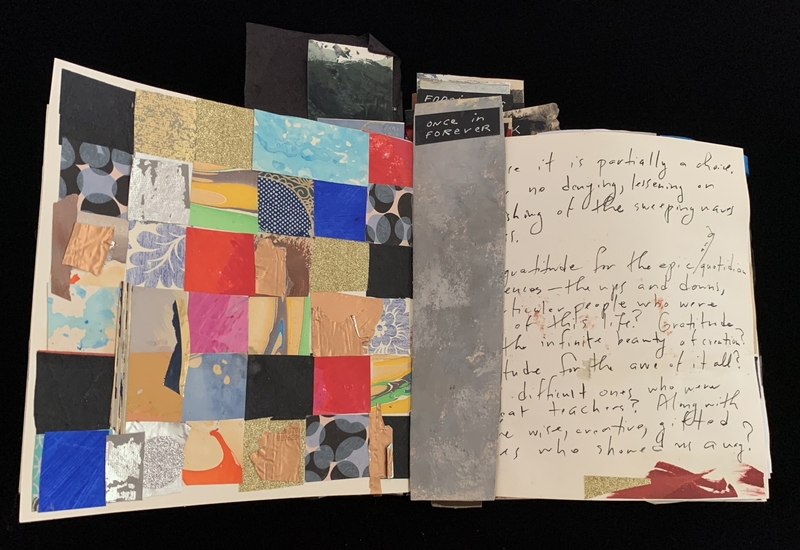 ONCE in
FOREVER
se it is partially a choice.
no denying, lessening or
shing of the sweeping waves
s.
gratitude for the epic/quotidian
ences—the ups and downs,
ticular people who were
of this life? Gratitude
the infinite beauty of creation?
tude for the awe of it all?
difficult ones who were
eat teachers? Along with
e wise, creative, gifted
es who showed us any?